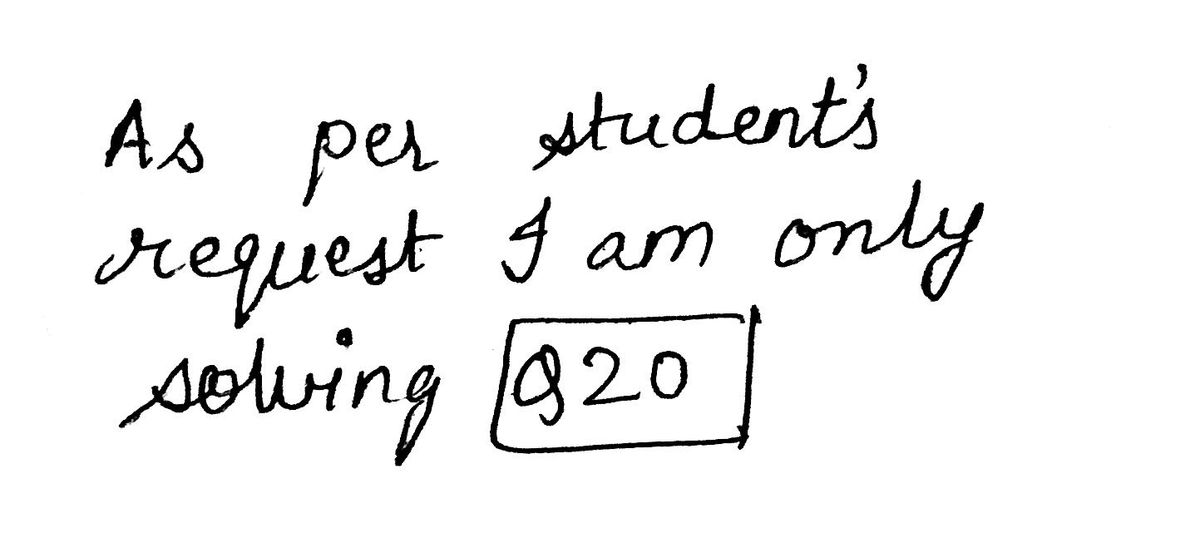 As per student's
request I am only
solving Q20